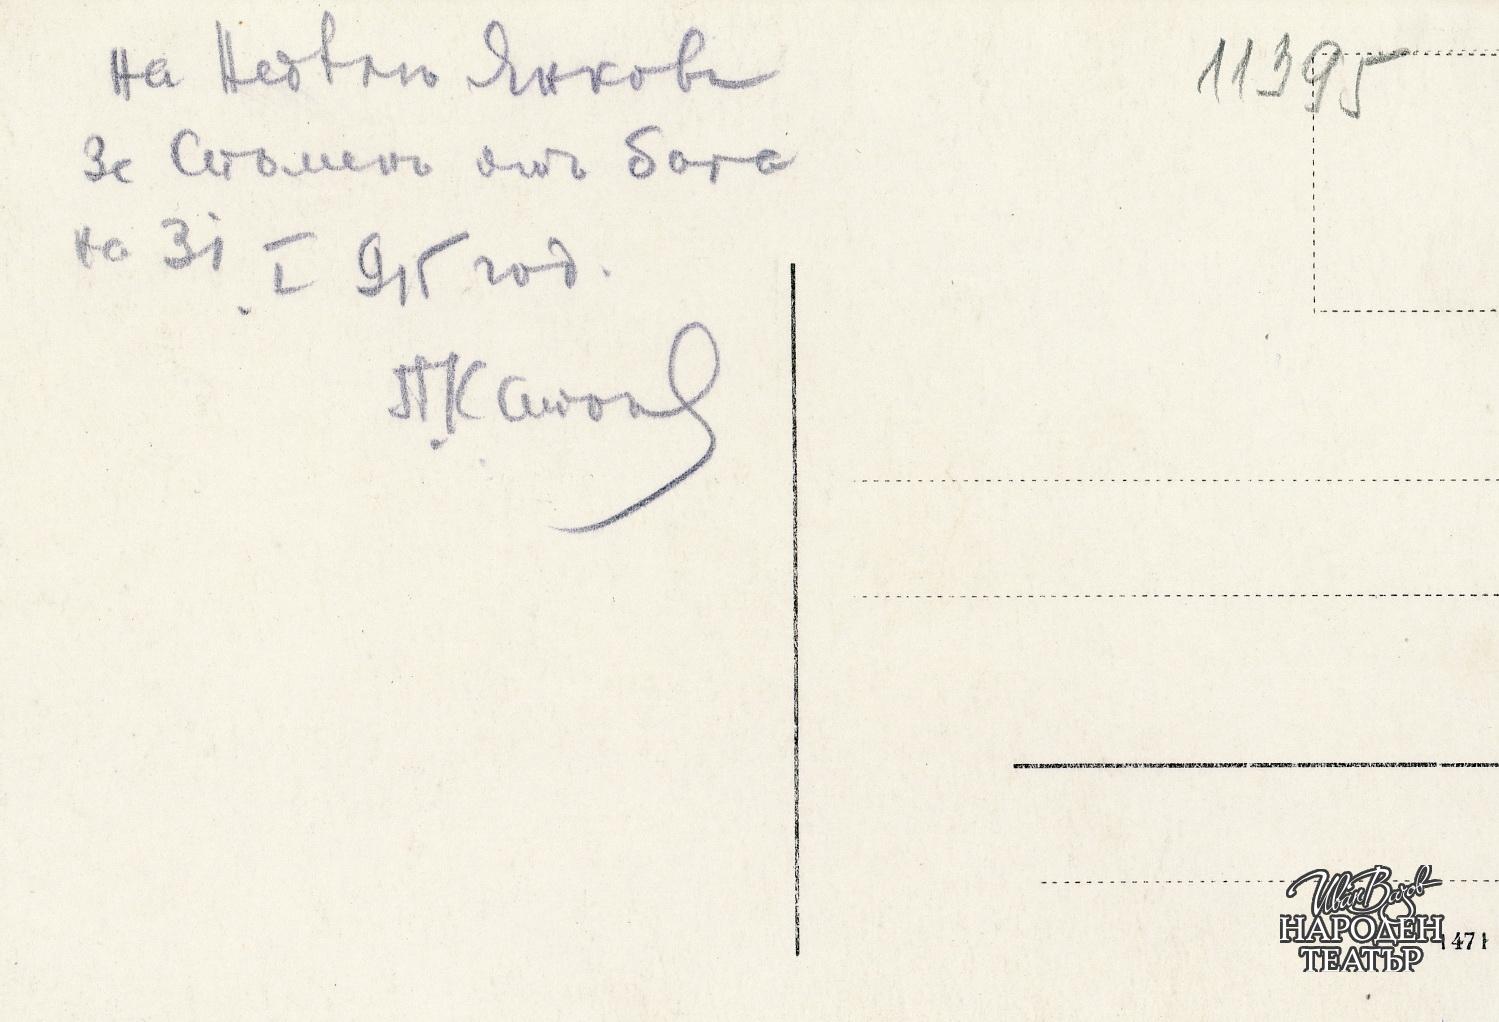 на Недѣлю Янкова
За Спомень отъ Бата
на 31 I 915 год.
П. К. Стои
11395
Иван Вазов
НАРОДЕН
ТЕАТЪР
1471